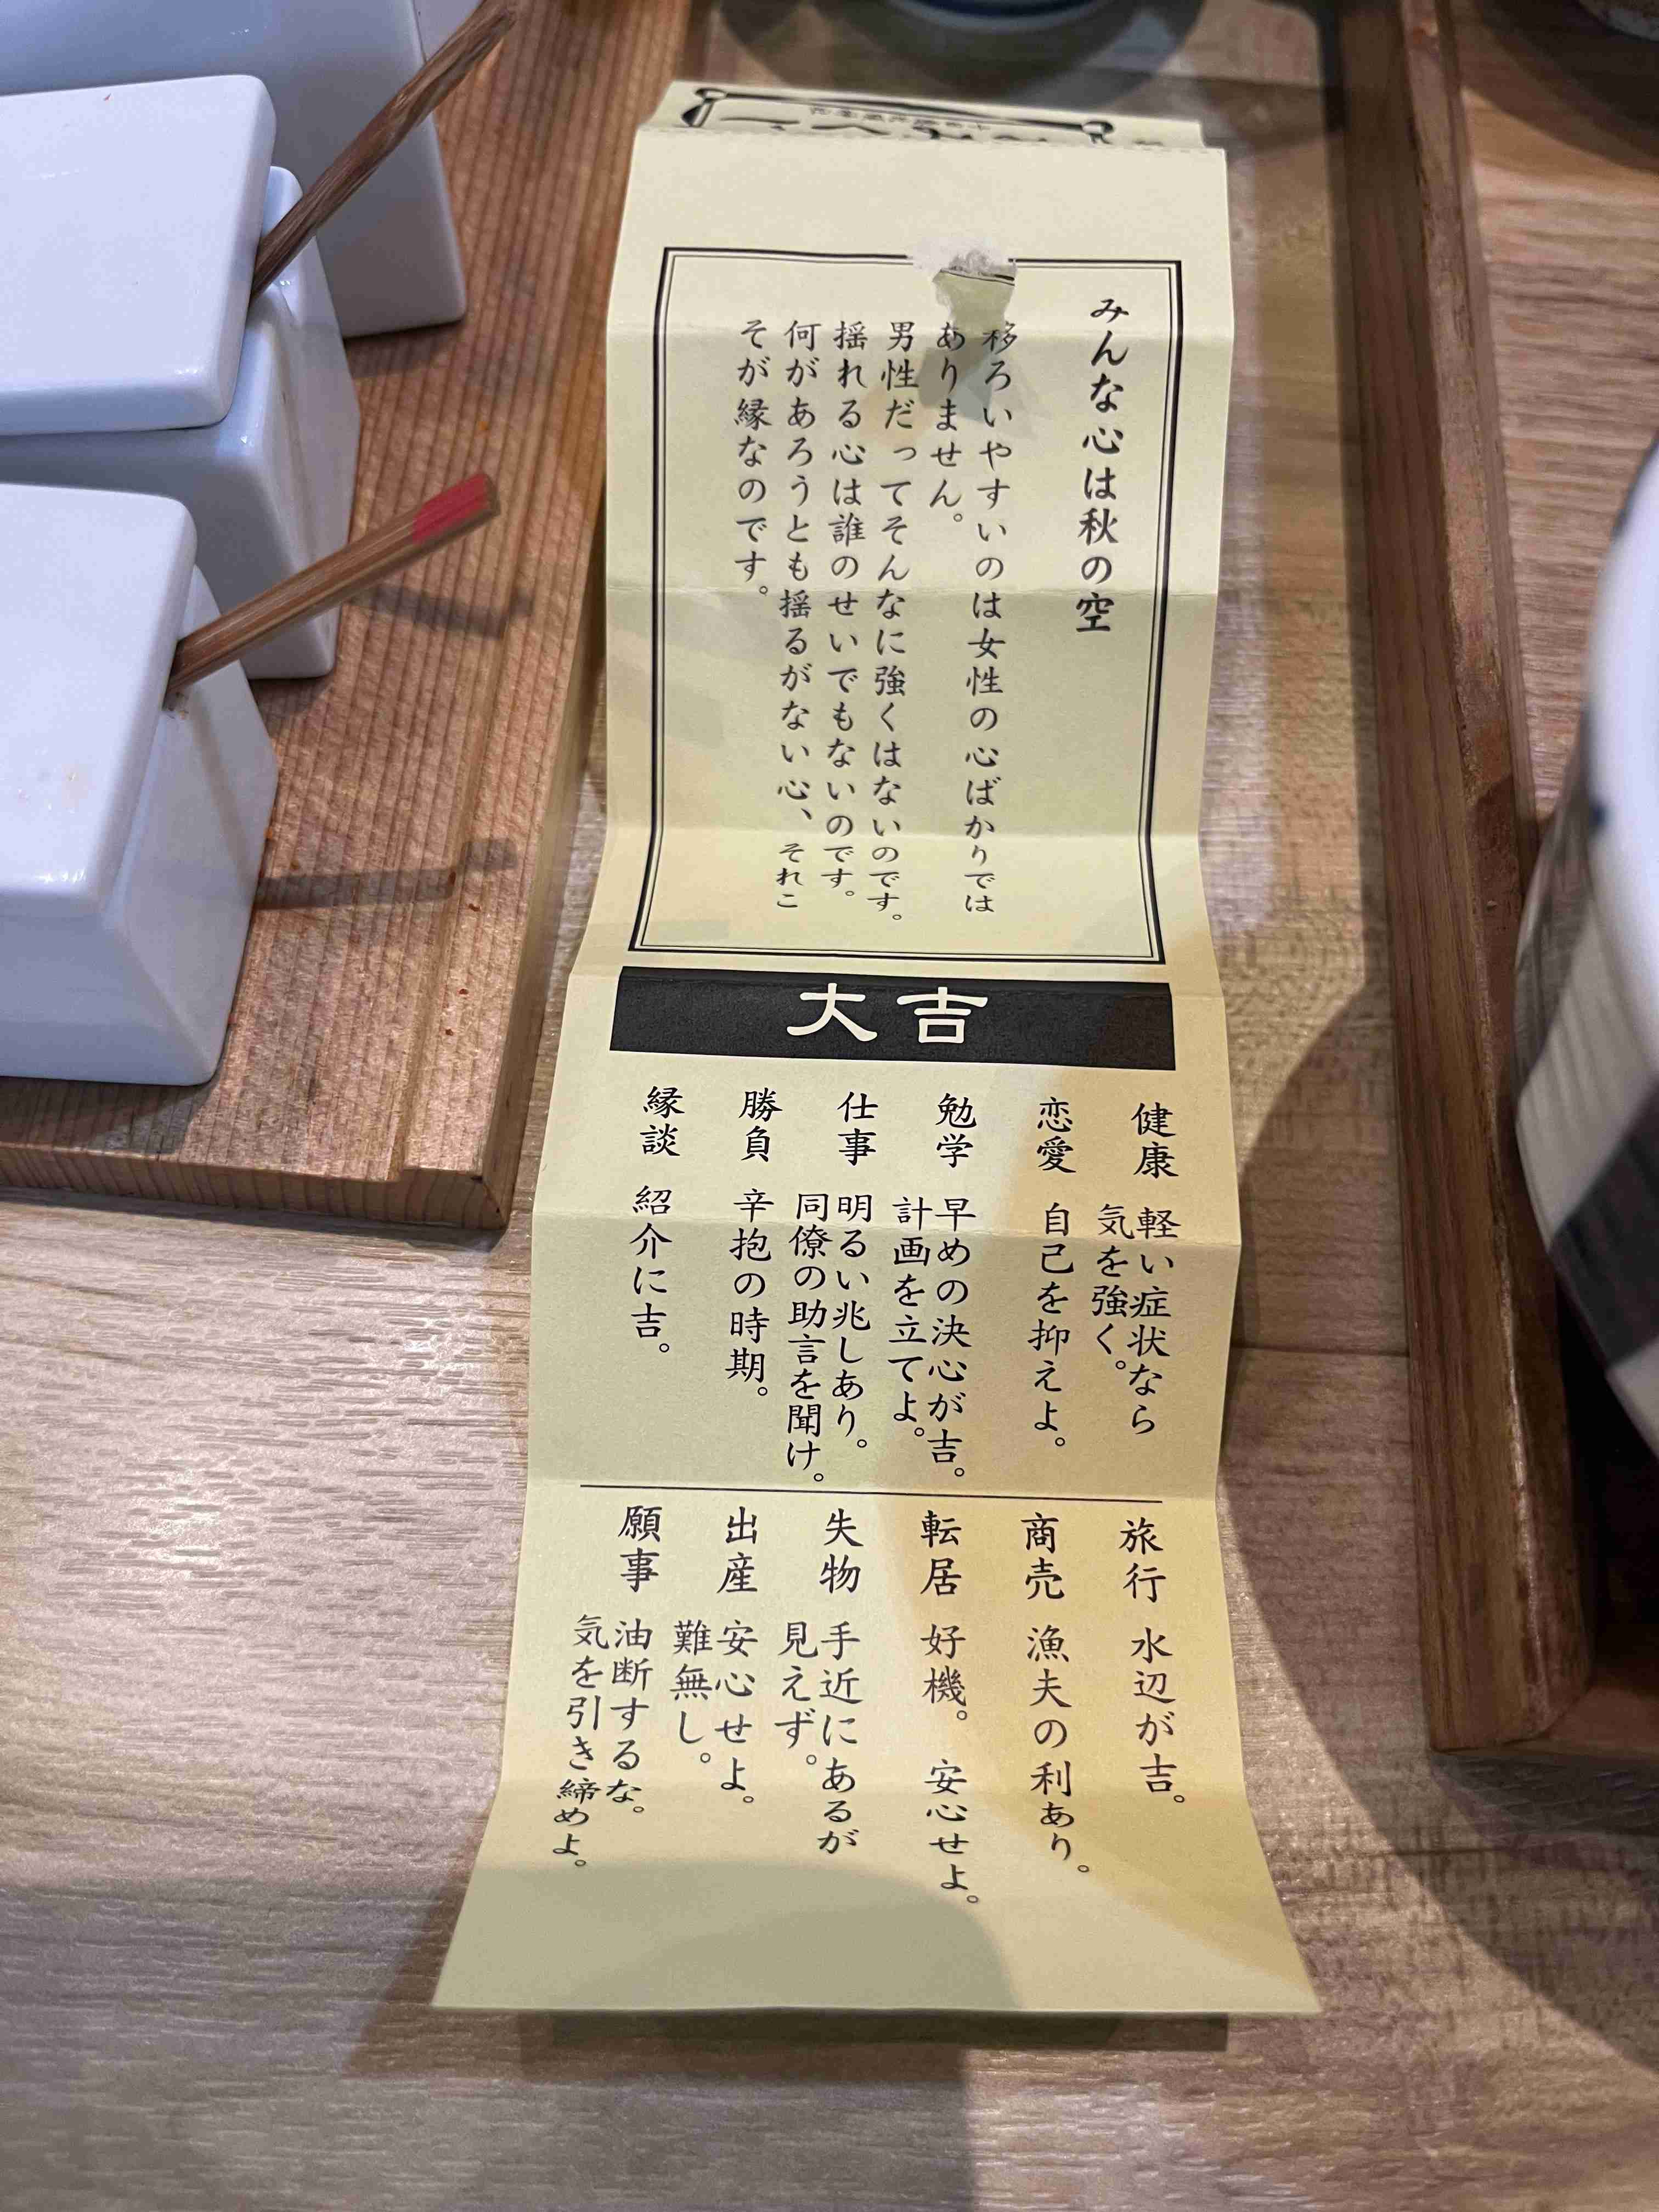 みんな心は秋の空
移ろいやすいのは女性の心ばかりでは
ありません。
男性だってそんなに強くはないのです。
揺れる心は誰のせいでもないのです。
何があろうとも揺るがない心、それこ
そが縁なのです。
大吉
健康 軽い症状なら
気を強く。
恋愛 自己を抑えよ。
勉学 早めの決心が吉。
計画を立てよ。
仕事 明るい兆しあり。
同僚の助言を聞け。
勝負 辛抱の時期。
縁談 紹介に吉。
旅行 水辺が吉。
商売 漁夫の利あり。
転居 好機。 安心せよ。
失物 手近にあるが
見えず。
出産 安心せよ。
難無し。
願事 油断するな。
気を引き締めよ。